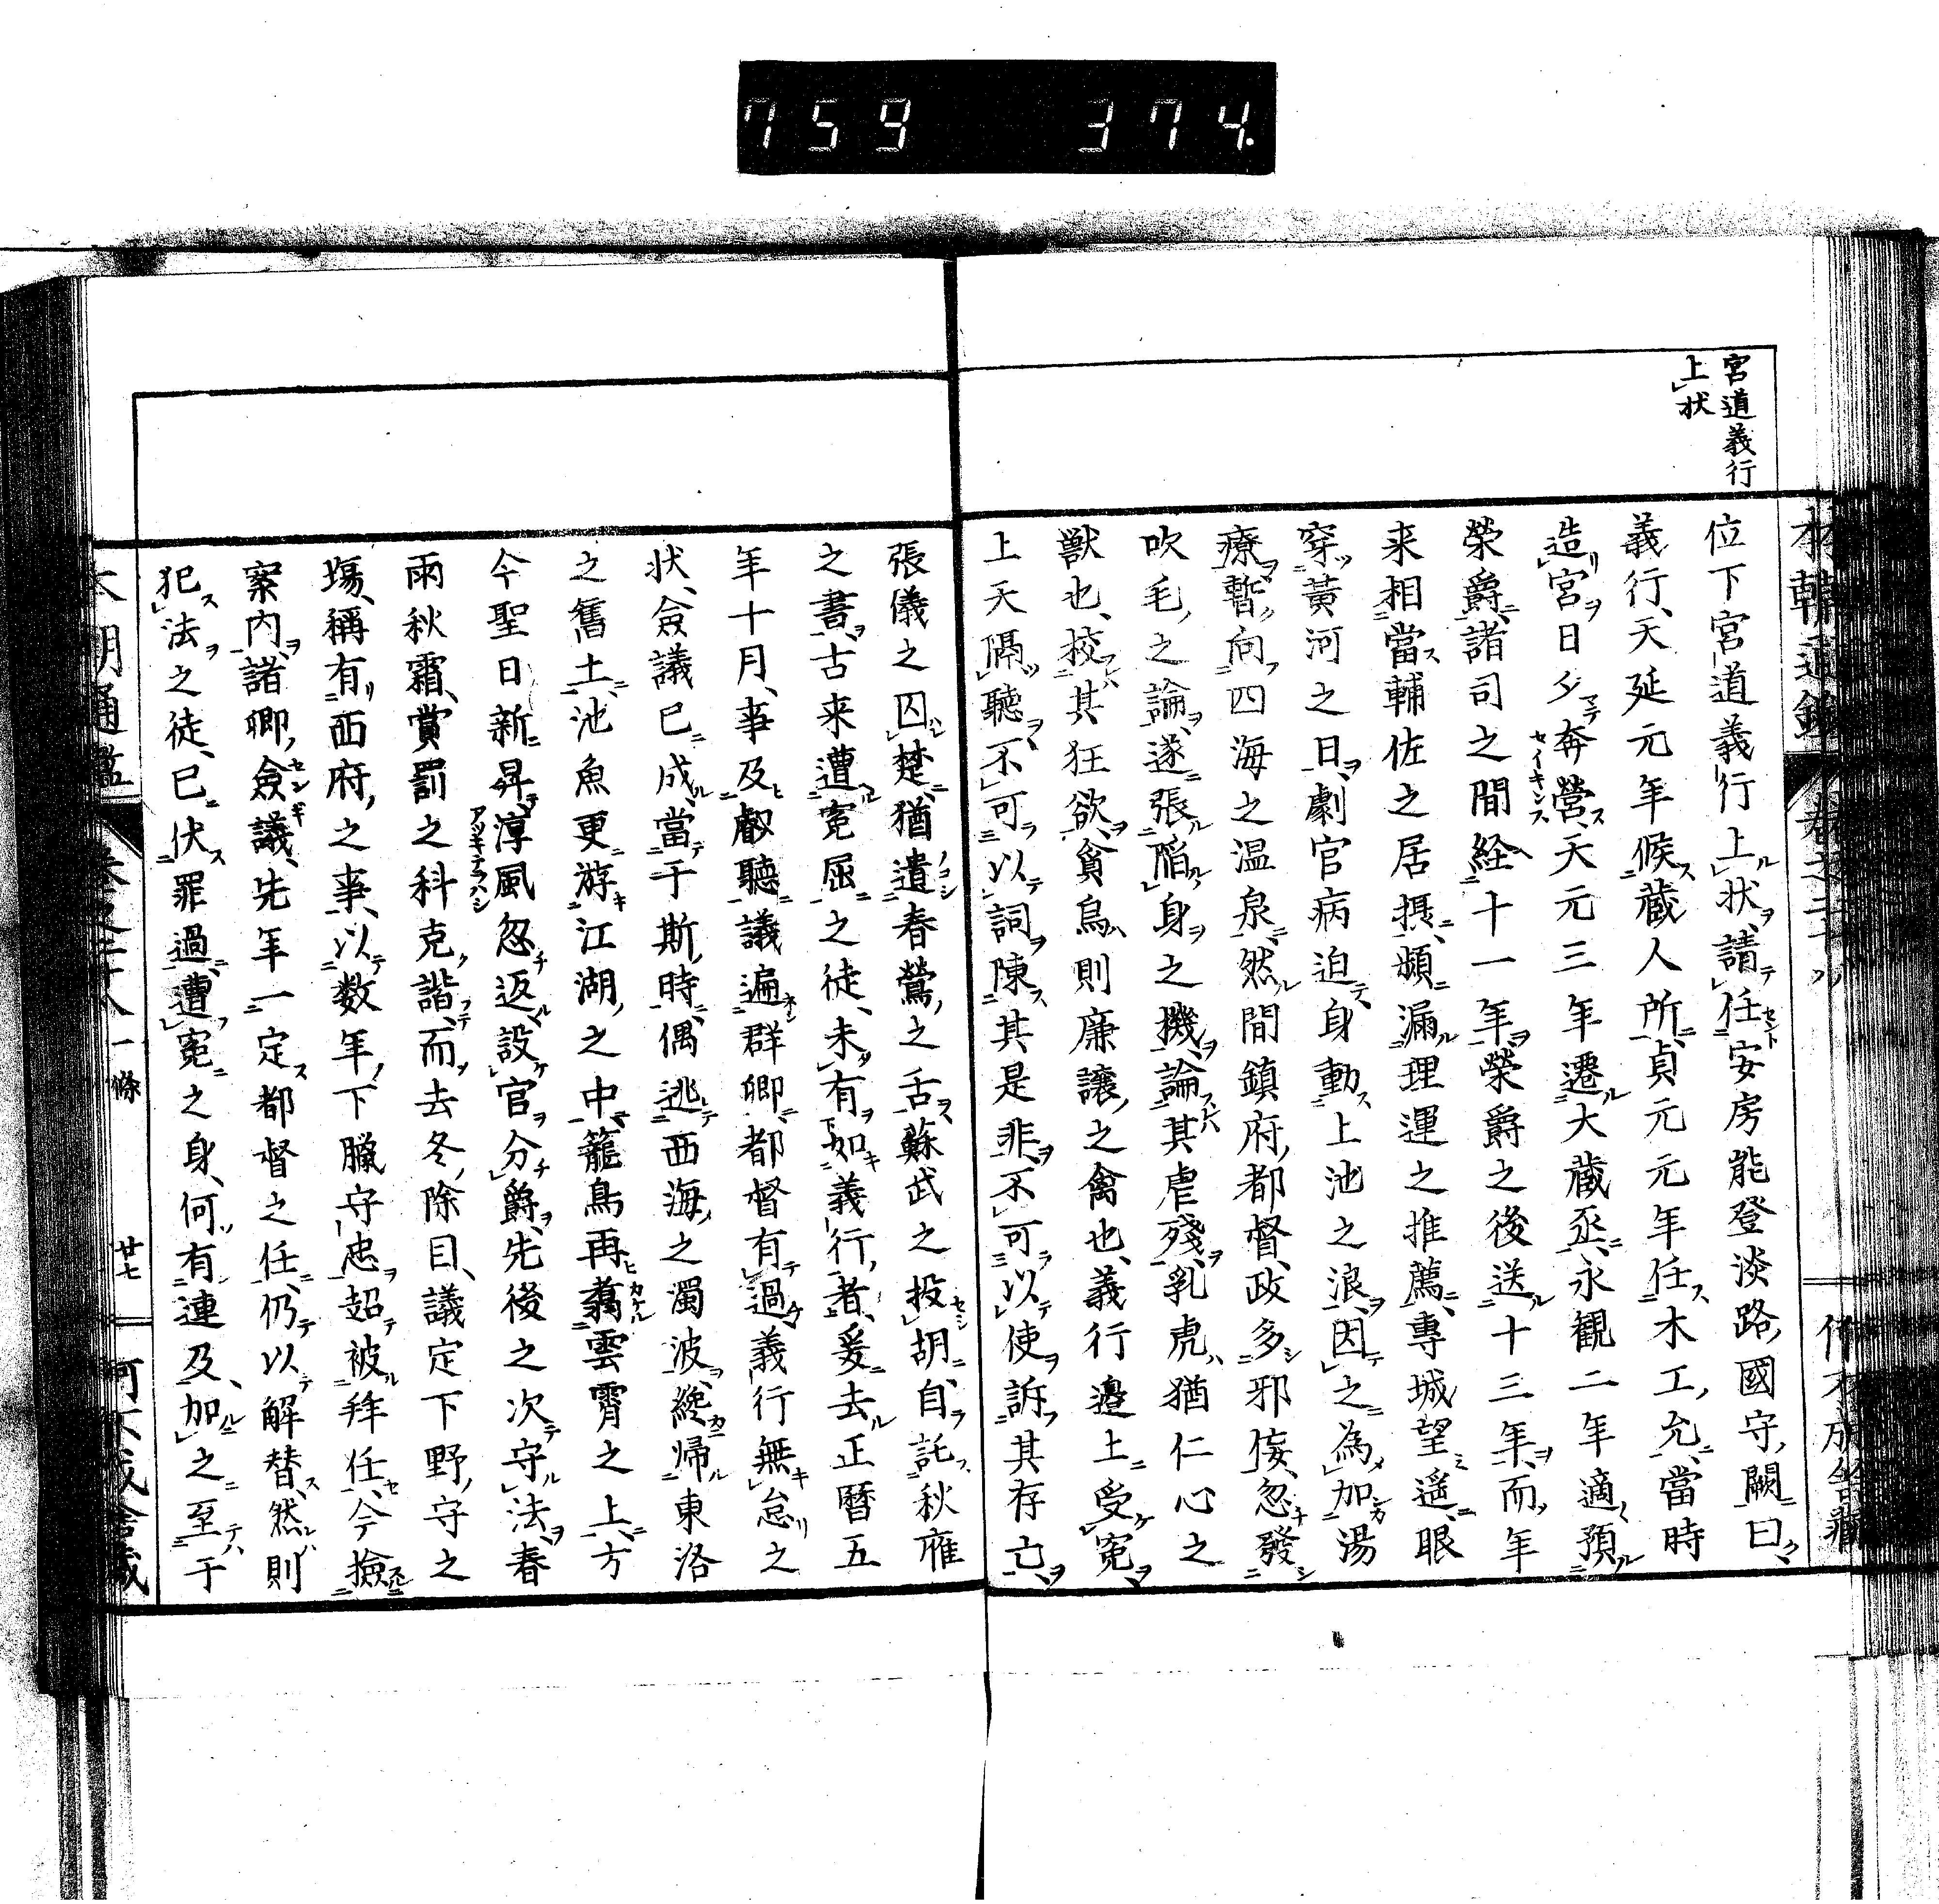 759 374.
宮道義行
上状
位下宮道義行上状請任安房能登淡路國守闕曰
義行天延元年候蔵人所貞元元年任木工允當時
造宮日夕奔營天元三年遷大蔵丞永観二年適預
榮爵諸司之間経十一年榮爵之後送十三年而年
来相當輔佐之居摂頻漏理運之推薦專城望遥眼
穿黄河之日劇官病迫身動上池之浪因之為加湯
療暫向四海之温泉然間鎮府都督政多邪侫忽發
吹毛之論遂張陥身之機論其虐殘乳虎猶仁心之
獣也校其狂欲貪烏則廉讓之禽也義行邉上受寃
上天隔聽不可以詞陳其是非不可以使訴其存亡
張儀之囚楚猶遺春鶯之舌蘇武之投胡自託秋雁
之書古来遭寃屈之徒未有如義行者爰去正暦五
年十月事及叡聽議遍群卿都督有過義行無怠之
状僉議已成當于斯時偶逃西海之濁波纔歸東洛
之舊土池魚更游江湖之中籠鳥再翥雲霄之上方
今聖日新昇淳風忽返設官分爵先後之次守法春
雨秋霜賞罰之科克諧而去冬除目議定下野守之
塲稱有西府之事以数年下臈守忠超被拜任今撿
案内諸卿僉議先年一定都督之任仍以解替然則
犯法之徒已伏罪過遭寃之身何有連及加之至于
本朝通鑑
一條
廿七